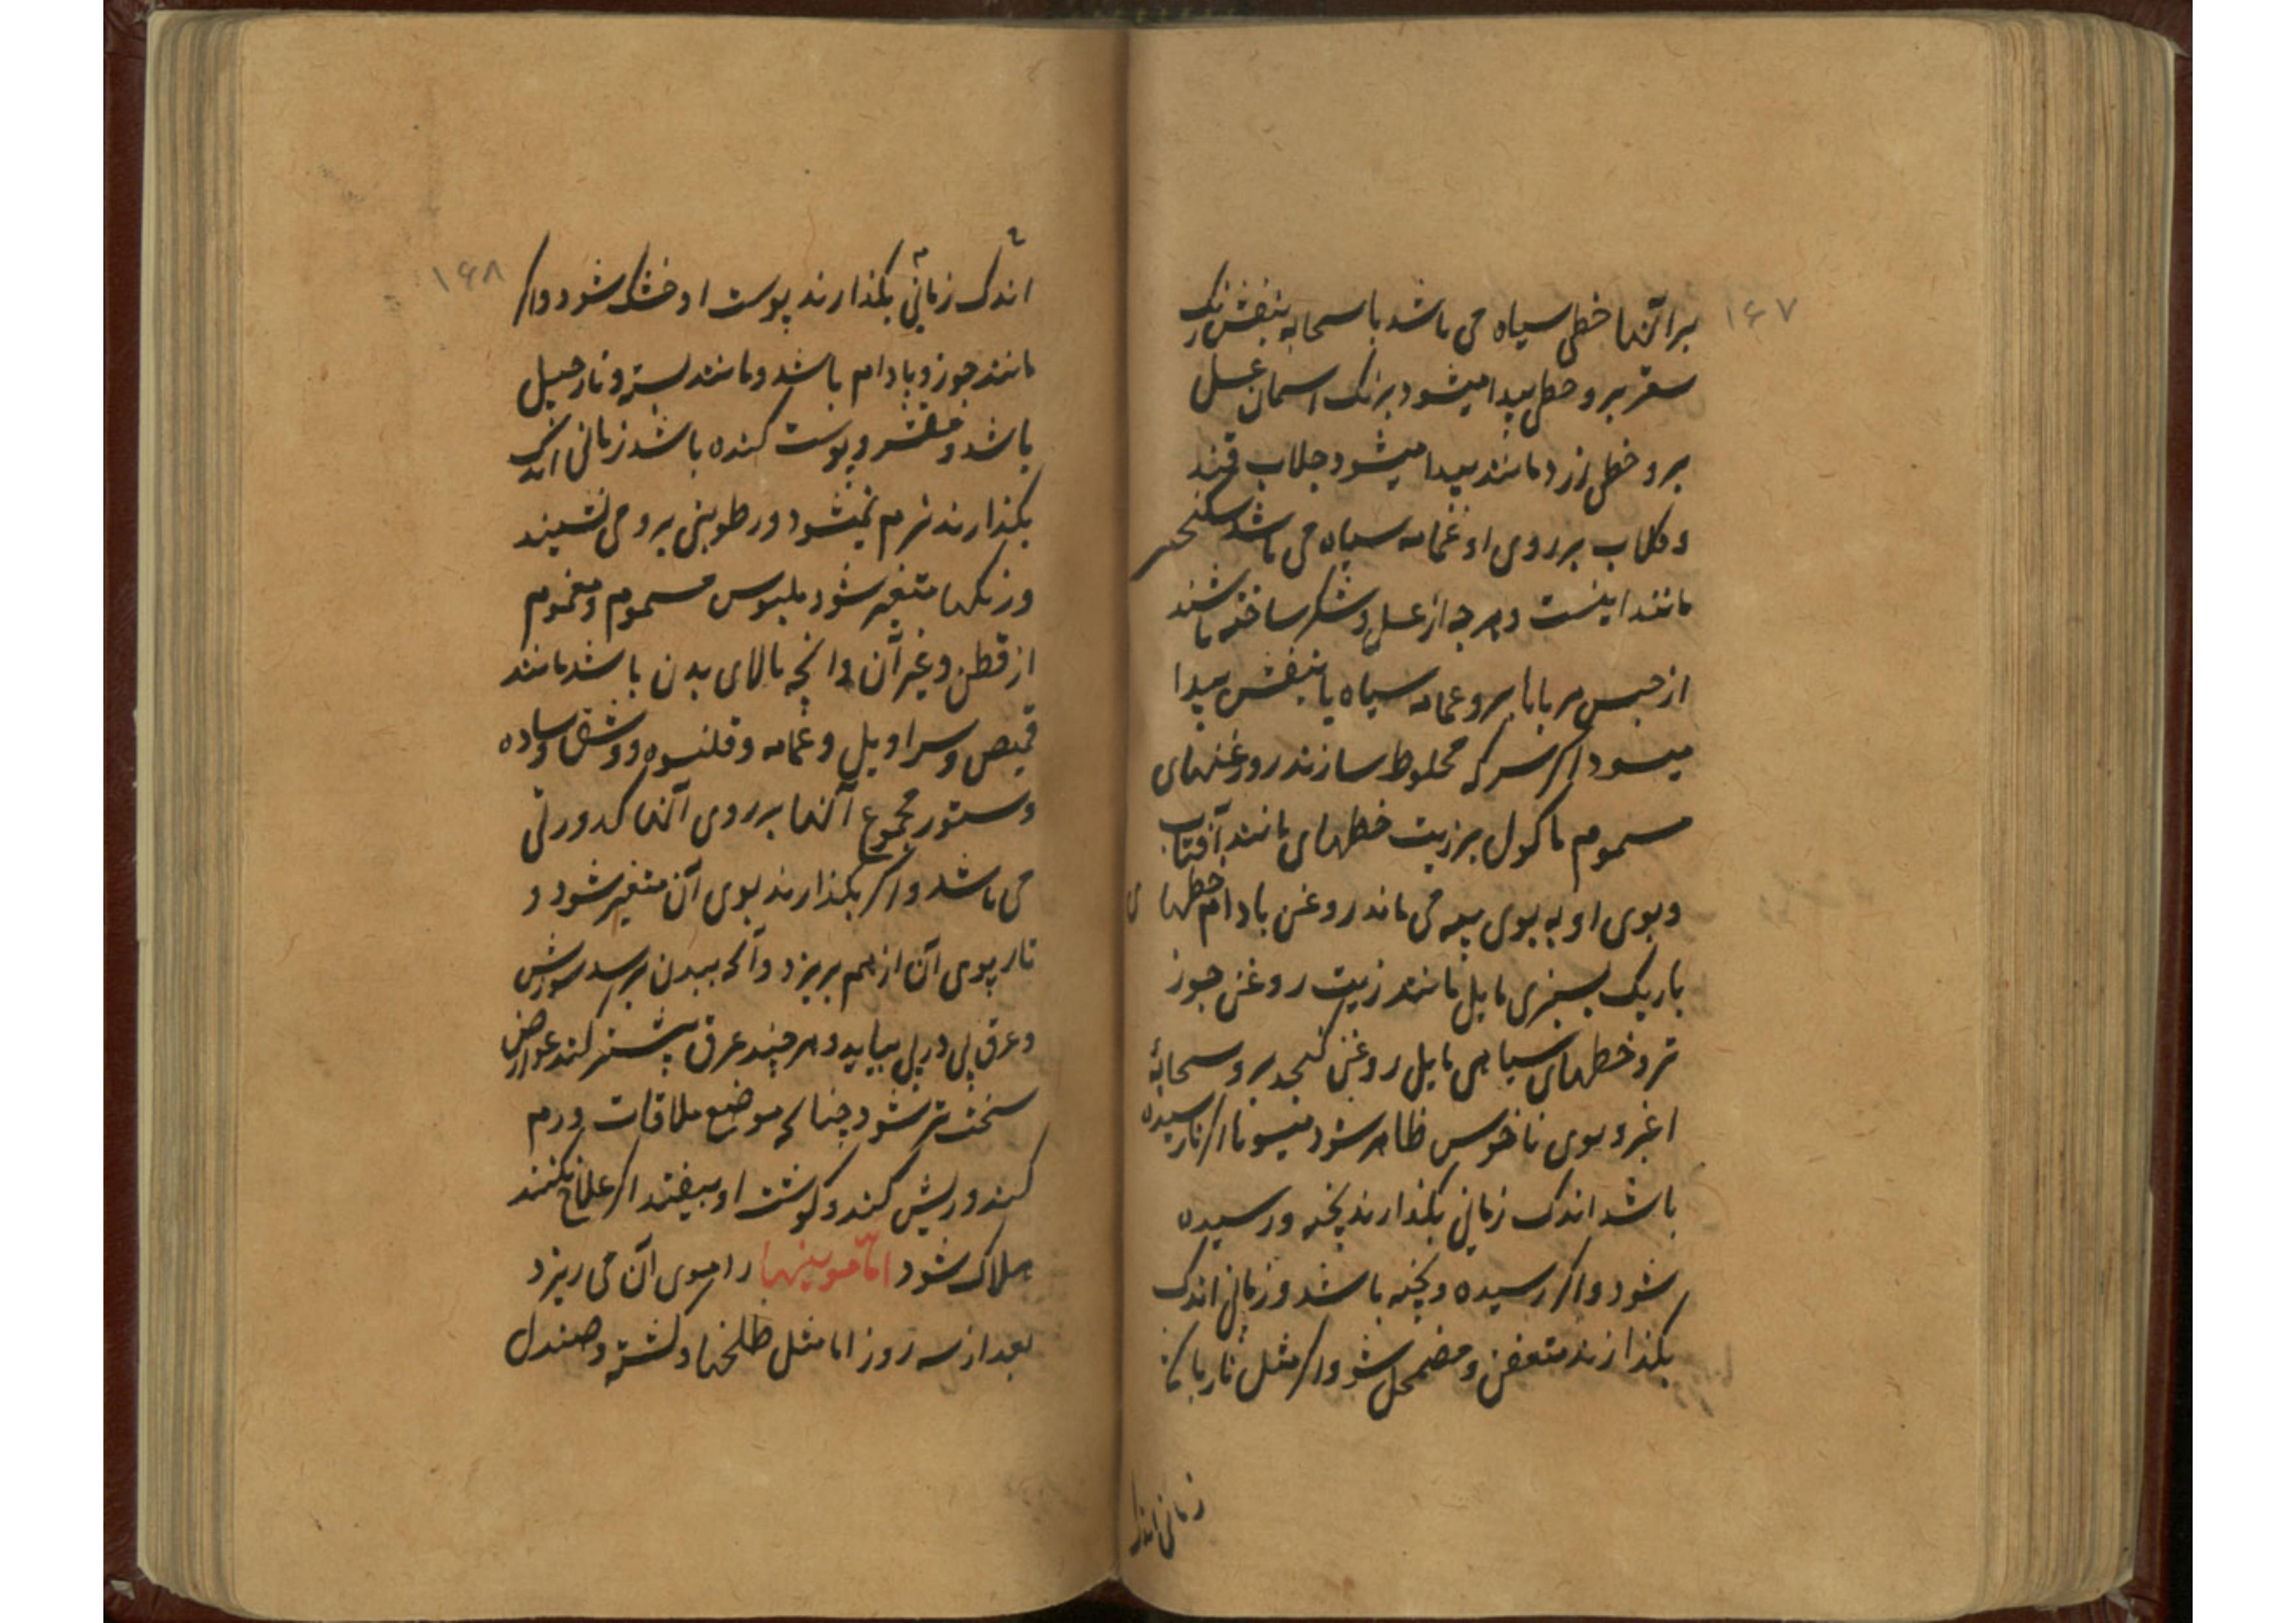 ۱۶۷
بر آنها خطی سیاه می باشد با سحابه بنفش رنگ
سقر برو خطی پیدا میشود برنک اسمان عسل
برو خطی زرد مانند پیدا میشود جلاب قند
و کلاب بر روی او غمامه سیاه می باشد
مانند اینست و هرجه از عسل و شکر ساخته باشند
از جنس مربابا برو غمامه سیاه یا بنفش پیدا
میسود اکر سرکه مخلوط سازند روغنهای
مسموم ماکول بر زیت خطهای مانند آفتاب
و بوی او به بوی پیه می ماند روغن بادام خطها ی
باریک بسبزی مایل مانند زیت روغن جوز
تر و خطهای سیاهی مایل روغن کنجد برو سحابهٔ
اغبر و بوی ناخوس ظاهر شود میوها اکر نارسیده
باشد اندک زمانی بکذارند پخته و رسیده
شود و اکر رسیده و پخته باشد و زمانی اندک
بکذارند متعفن و مضمحل شود و اکر مثل نار با
زمانی اندک
۱۶۸
اندک زمانی بکذارند پوست او خشک شود و اکر
مانند جوز و بادام باشد و مانند پسته و نارجیل
باشد و مقشر و پوست کنده باشد زمانی اندک
بکذارند نرم میشود و رطوبتی برو می نشیند
و رنکها متغیر شود ملبوس مسموم و مغموم
از قطن و غیر آن و انچه بالای بدن باشد مانند
قمیص و سراویل و عمامه و قلنسوه و وشق و وساده
و ستور مجموع آنها بر روی آنها کدورتی
می باشد و اکر بکذارند بوی آن متغیر شود و
تار پوی آن از هم بریزد و آنکه ببدن برسد سورش
و عرق پی در پی بیاید و هر چند عرق پیشتر کند عوارض
سخت تر شود چنانکه موضع ملاقات ورم
کند و ریش کند و کوشت او بیفتد اکر علاج نکنند
هلاک شود اما موینها را موی آن می ریزد
بعد از سه روز اما مثل طلخها و لشته و صندل